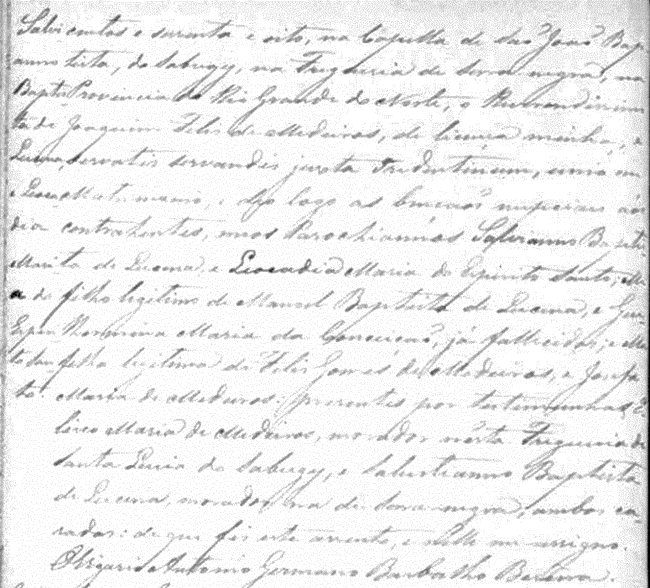 Salvi centos e secenta e oito, na Capella de São João Bap-
anno tista, do Sabugy, na Freguesia de Serra negra, na
Baptis Provincia do Rio Grande do Norte, o Reverendissimo
ta de Joaquim Felis de Medeiros, de licença minha, e
Lucena servatis servandis juxta Tridentinum, unio em
e Leoca Matrimonio, e deo logo as bençaós nupciais aós
dia contrahentes, meos Parochiannos Salvianno Baptis-
Maria ta de Lucena, e Leocadia Maria do Espirito Santo; el-
a do filho legitimo de Manoel Baptista de Lucena, e Guer-
Espiri Maria da Conceicaó, já fallecidos; e ella
to San filha legitima de Felis Gomes de Medeiros, e Josefa
to. Maria de Medeiros: presentes por testimunhas
Maria de Medeiros, morador nésta Freguesia de
Santa Luzia do Sabugy, e Salustianno Baptista
de Lucena, morador na de Serra negra, ambos ca-
zados: de que fis este assento, e nelle me assigno.
O Vigario Antonio Germano Barbalho Beserra.